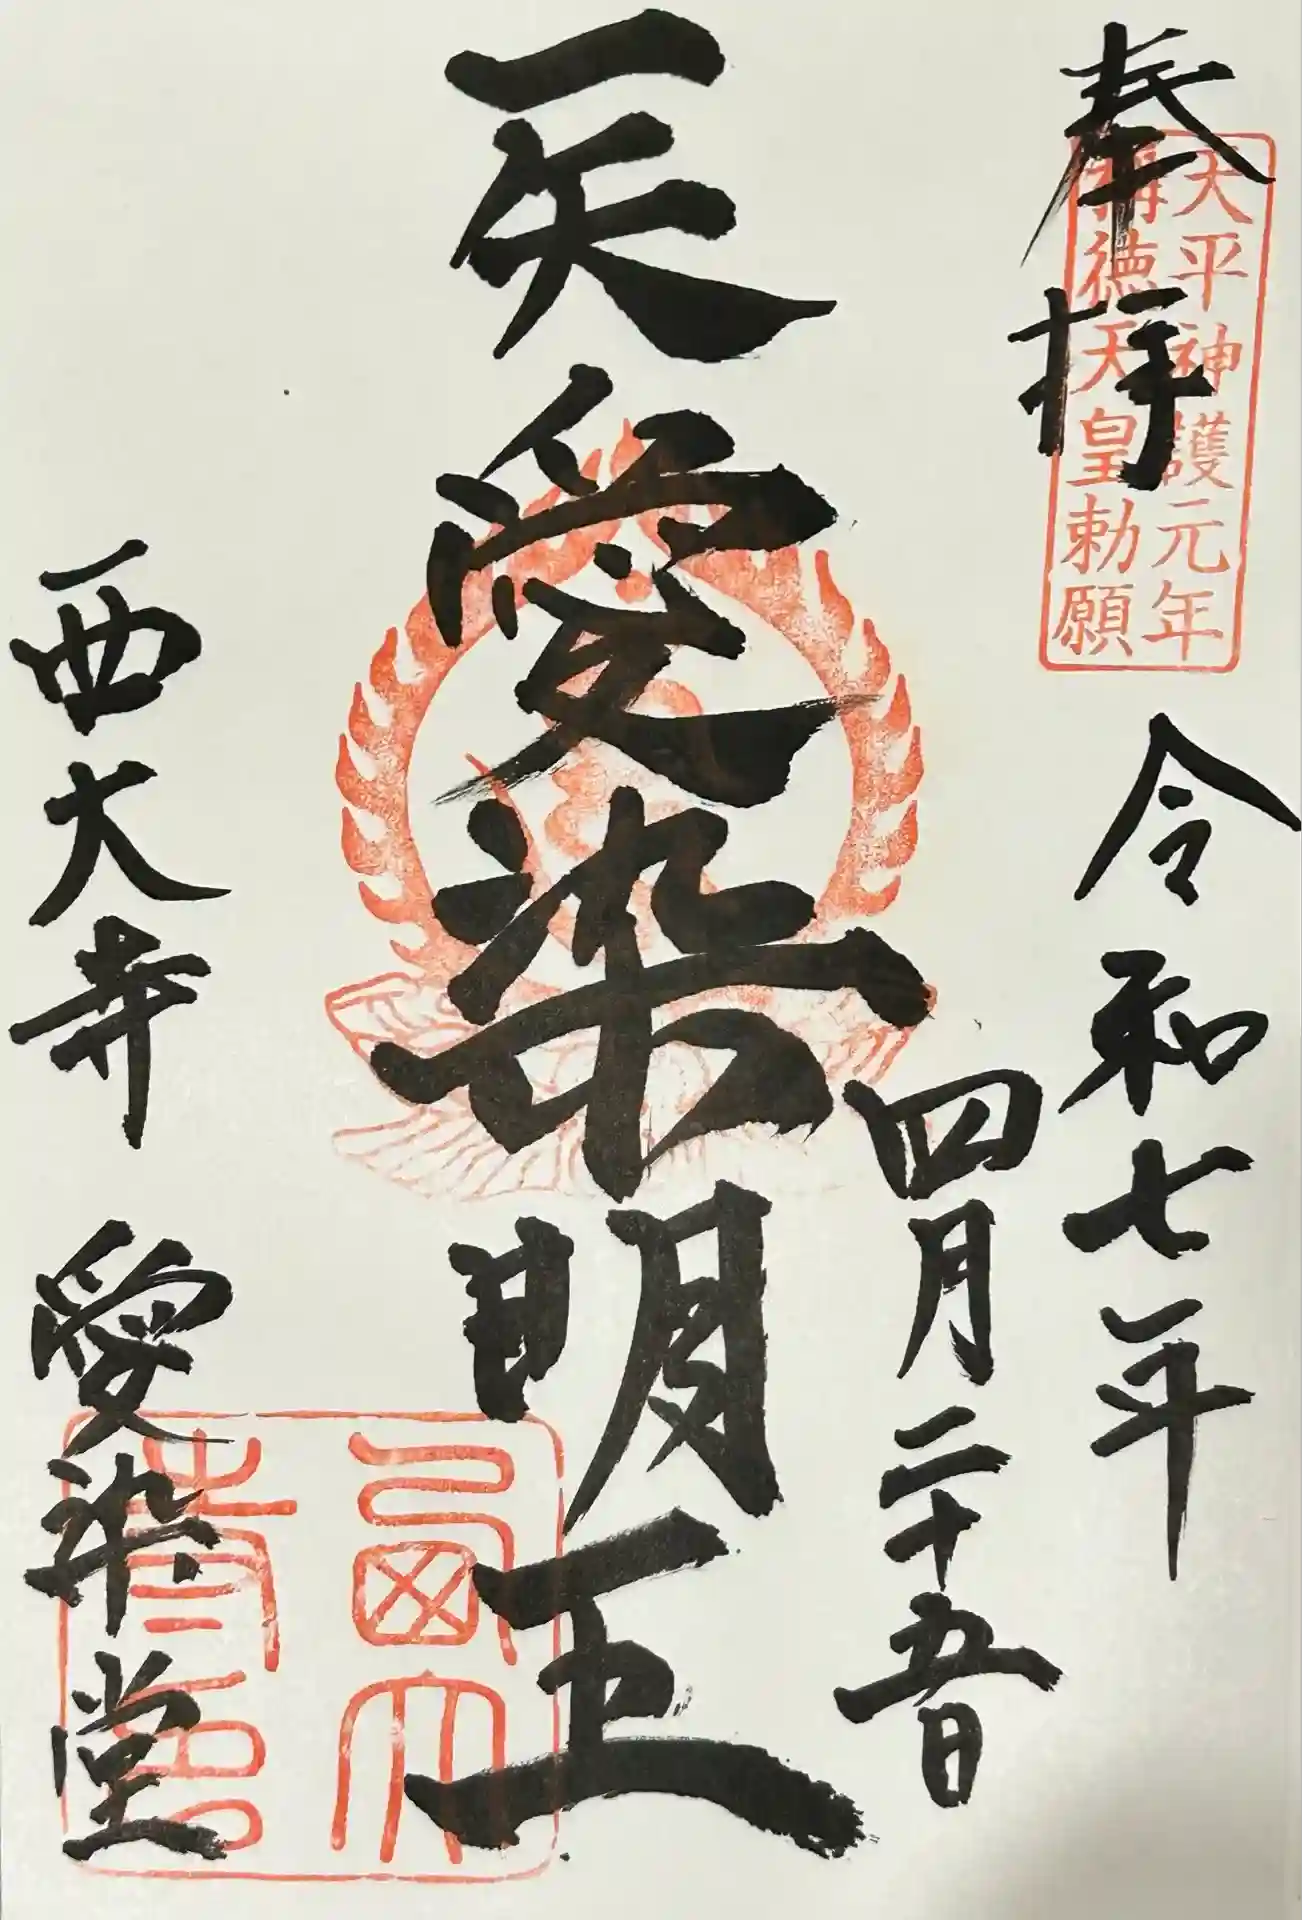 奉拝
天平神護元年
稱徳天皇勅願
令和七年
四月二十五日
一矢愛染明王
西大寺 愛染堂
西大寺印